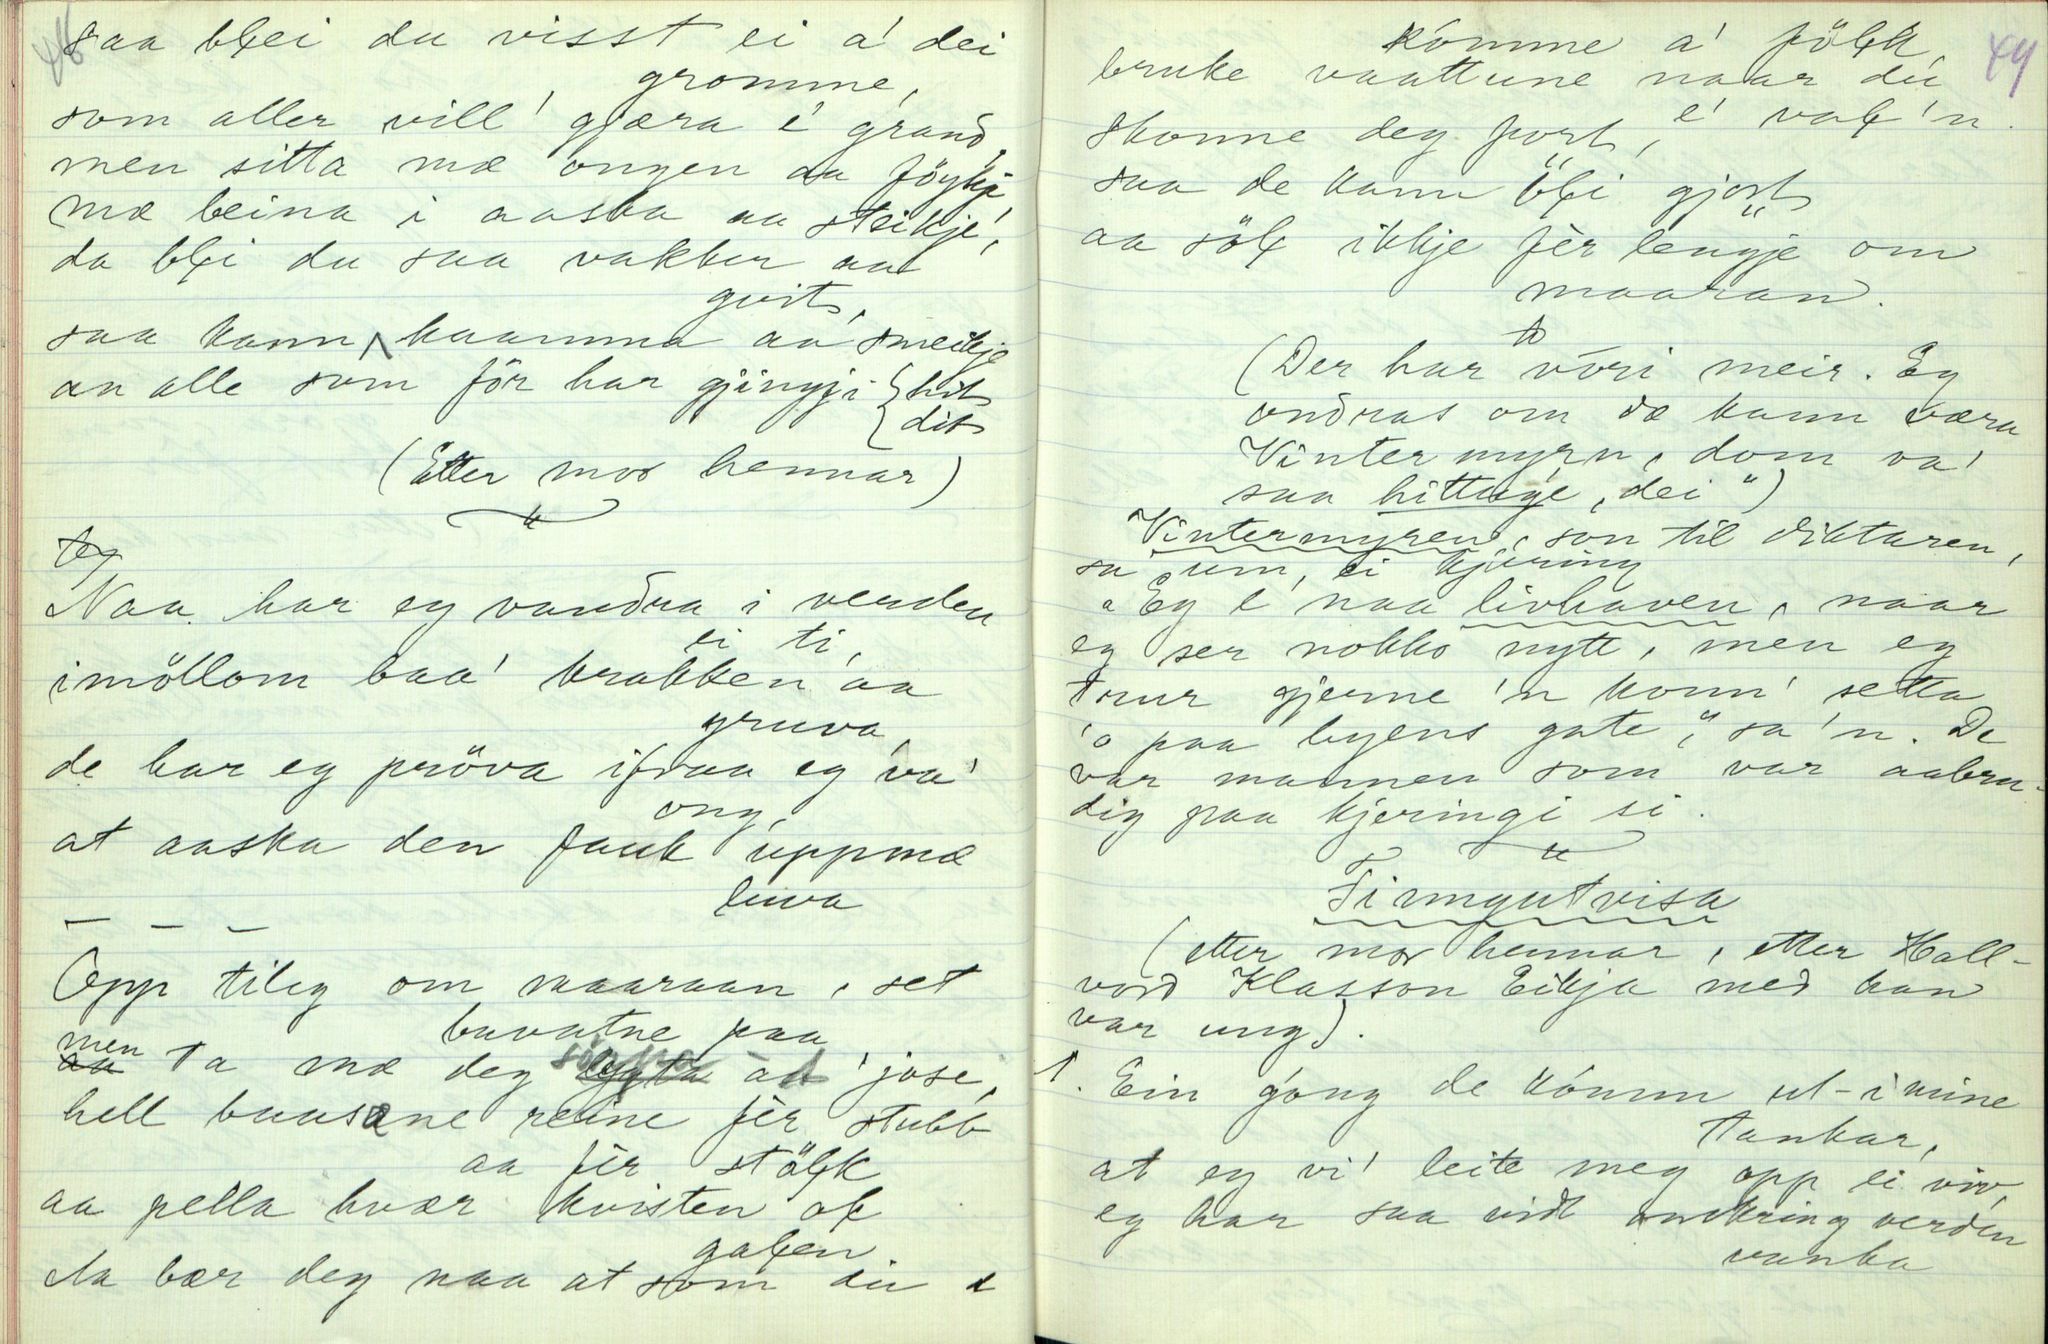 saa blei du visst ei á dei
gromme,
som aller vill' gjæra é grand,
men sitta mæ ongen aa föykje,
mæ beina i aaska aa steikje,
da blei du saa vakker aa
gvit,
saa kann kaamma aa smeikje
an alle som för har gjingji { hit
{ dit
(Etter mor hennar)
Naa har eg vandra i verden
ei ti,
imöllom baa' krakken aa
gruva,
de har eg pröva ifraa eg va'
ong,
at aaska den fauk uppmæ
luva
— — —
Opp tileg om maaraan, set
buvatne paa
men
aa ta mæ deg at 'jøse,
hell baasane reine fèr stubb
aa fèr stölk
aa pella hvær kvisten af
galen.
Ta bær deg naa at som du
48
49
komme á fölk,
bruke vaattune naar dú
é' val'n.
skonne deg fort,
saa de kann bli gjort
aa söl ikkje fèr lengje om
maaran."
(Der har vóri meir. Eg
ondras om dæ kann væra
Vintermyrn, dom va'
saa hittuge, dei")
Vintermyren, son til diktaren,
sa um, ei kjæring
"Eg é naa livhaven, naar
eg ser nokko nytt, men eg
trur gjerne 'n konn' setta
'o paa byens gate," sa 'n. De
var mannen som var aabru-
dig paa kjeringi si.
Finngutvisa
(etter mor hennar, etter Hall-
vord Klasson Eikja med han
var ung).
1. Ein gong de kómm ut-i mine
tankar,
at eg vi' leite meg opp ei viv,
eg har saa vidt omkring verden
vanka